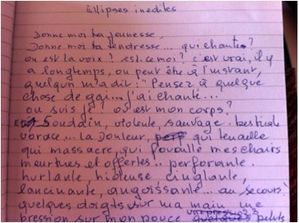 Ellipses inédites
Donne moi ta jeunesse,
Donne moi ta tendresse... qui chante?
ou est la voix? est-ce moi? c'est vrai, il y
a longtemps, ou peut être à l'instant,
quelqu'un m'a dit: "Pensez à quelque
chose de gai... j'ai chanté...
ou suis je? où est mon corps?
Soudain, violente, sauvage, bestiale
vorace... la douleur, qui tenaille
qui massacre, qui fouaille mes chairs
meurtries et offertes.. perforante.
hurlante, hideuse cinglante,
lancinante, angoissante... au secours!
quelques doigts sur ma main, une
pression sur mon pouce puis